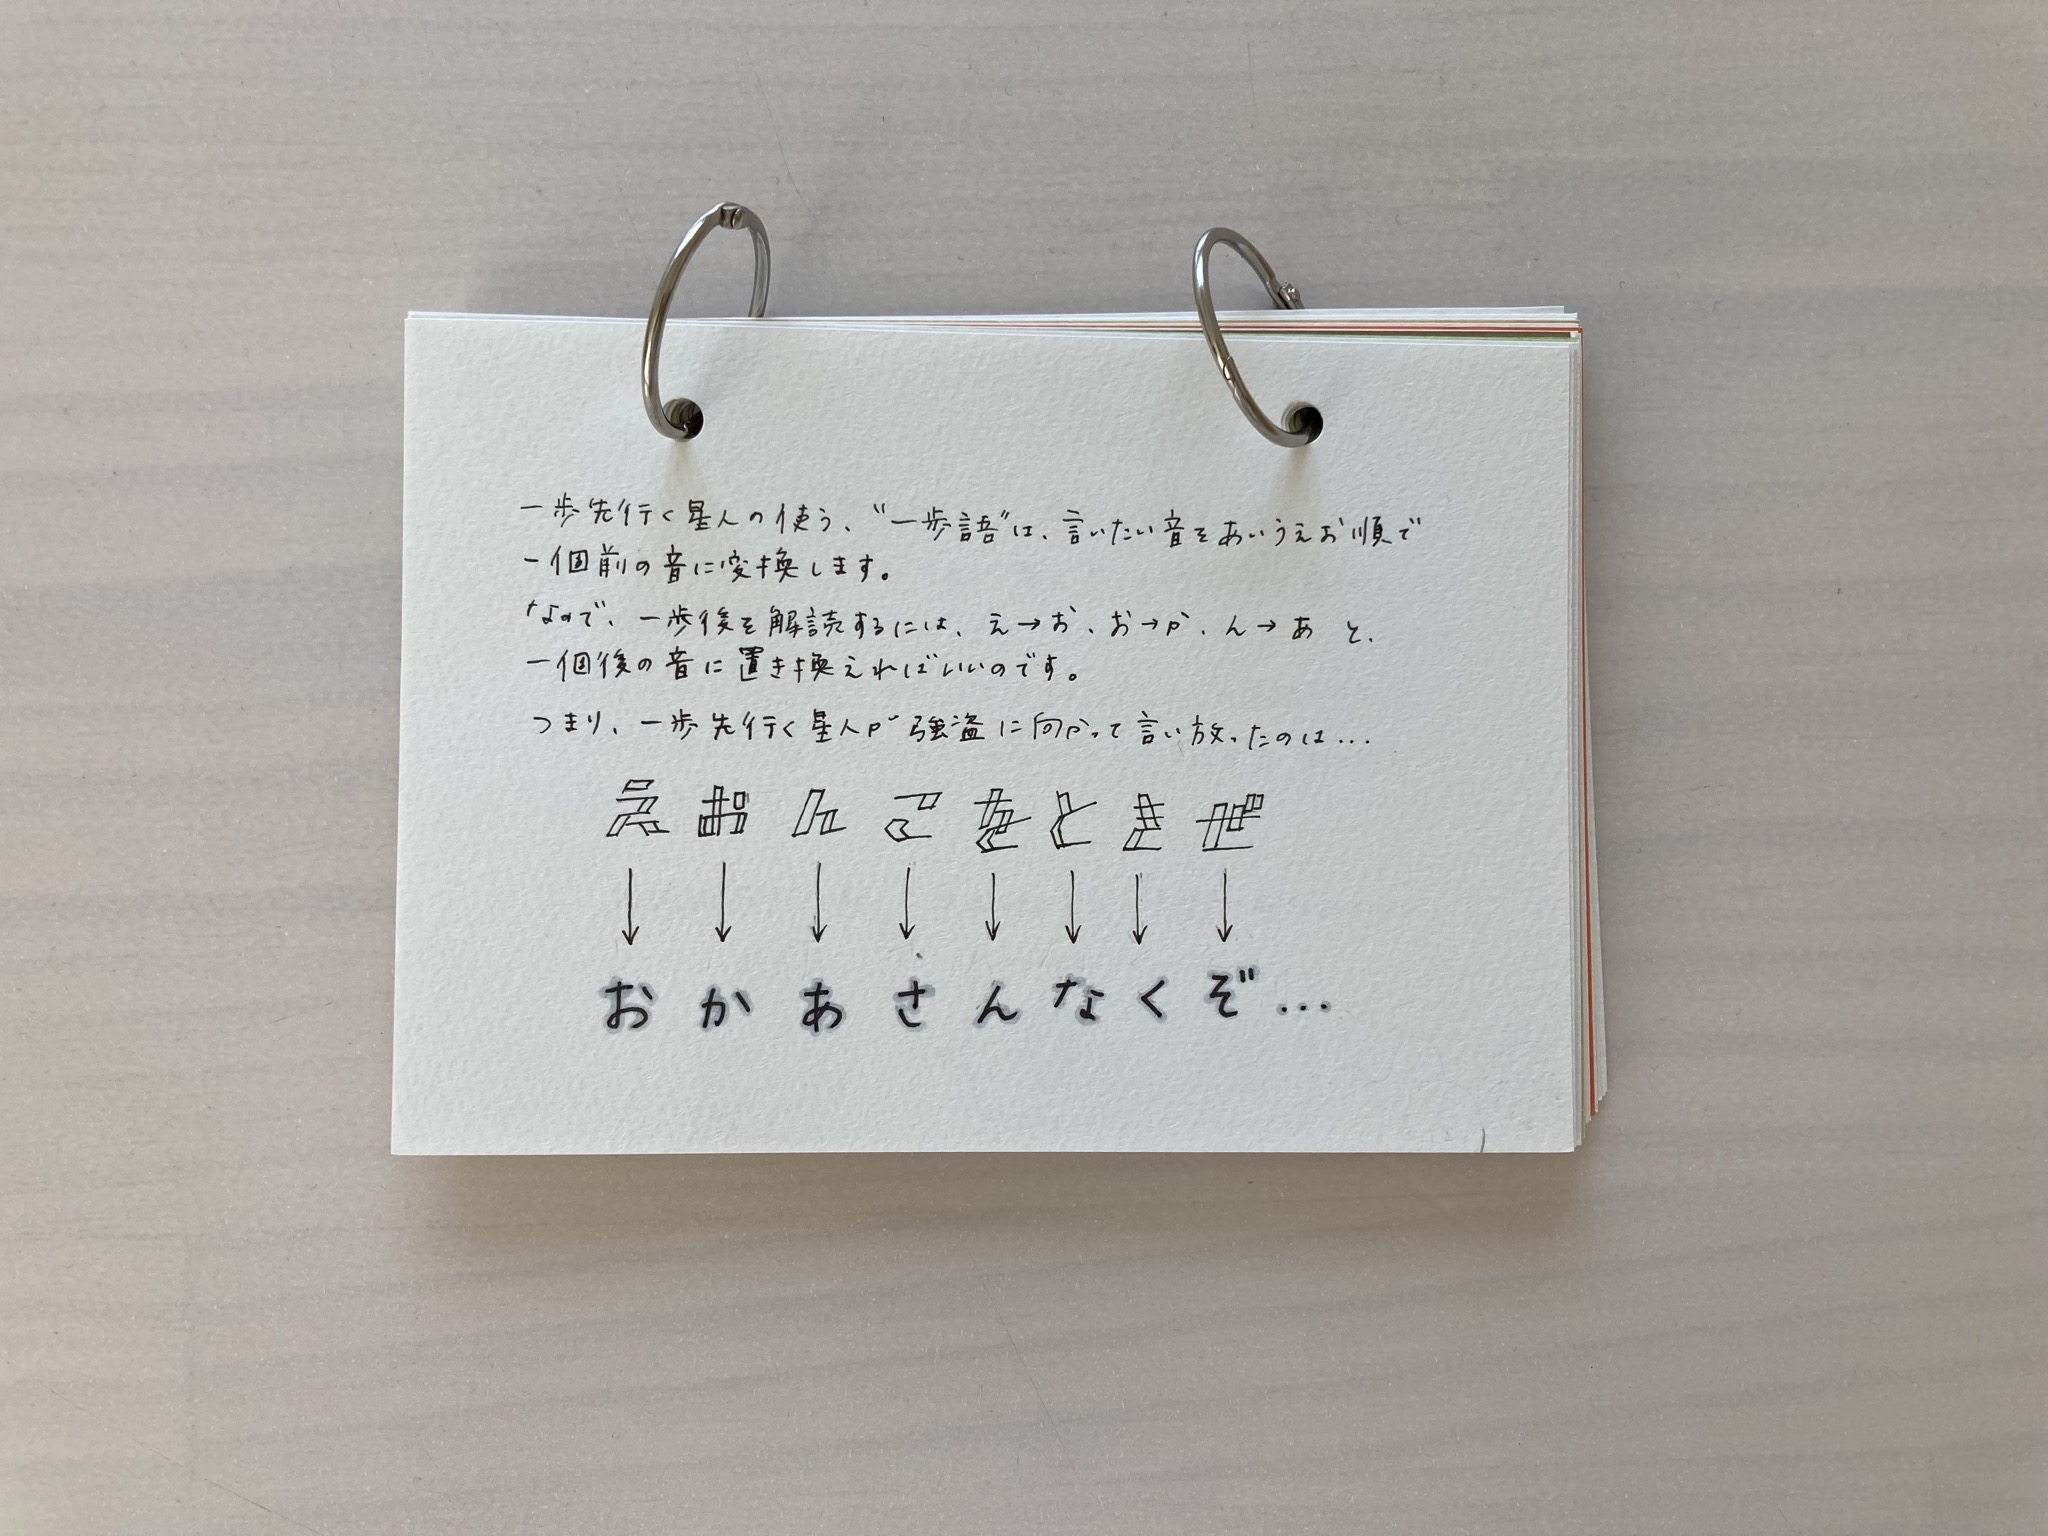 一歩先行く星人の使う、"一歩語"は、言いたい音をあいうえお順で
一個前の音に変換します。
なので、一歩後を解読するには、え→お、お→か、ん→あ と、
一個後の音に置き換えればいいのです。
つまり、一歩先行く星人が強盗に向かって言い放ったのは...
えおんこをときぜ
↓↓↓↓↓↓↓↓
おかあさんなくぞ...